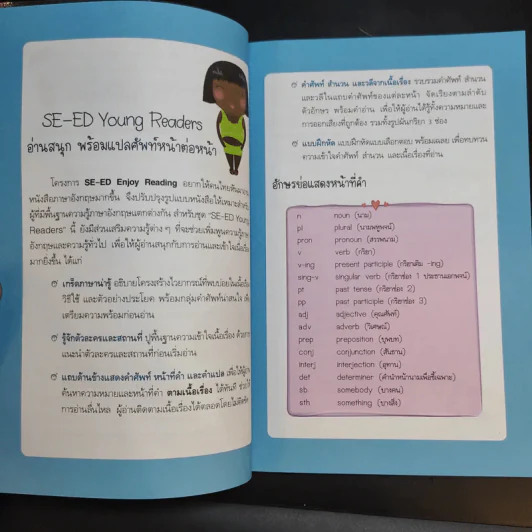 SE-ED Young Readers
อ่านสนุก พร้อมแปลศัพท์หน้าต่อหน้า
โครงการ SE-ED Enjoy Reading อยากให้คนไทยหันมาอ่าน
หนังสือภาษาอังกฤษมากขึ้น จึงปรับปรุงรูปแบบหนังสือให้เหมาะสำหรับ
ผู้ที่มีพื้นฐานความรู้ภาษาอังกฤษแตกต่างกัน สำหรับชุด "SE-ED Young
Readers" นี้ ยังมีส่วนเสริมความรู้ต่าง ๆ ที่จะช่วยเพิ่มพูนความรู้ภาษา
อังกฤษและความรู้ทั่วไป เพื่อให้ผู้อ่านสนุกกับการอ่านและเข้าใจเนื้อเรื่อง
มากยิ่งขึ้น ได้แก่
เกร็ดภาษาน่ารู้ อธิบายโครงสร้างไวยากรณ์ที่พบบ่อยในเนื้อเรื่อง
วิธีใช้ และตัวอย่างประโยค พร้อมกลุ่มคำศัพท์น่าสนใจ
เตรียมความพร้อมก่อนอ่าน
รู้จักตัวละครและสถานที่ ปูพื้นฐานความเข้าใจเนื้อเรื่อง ด้วยการ
แนะนำตัวละครและสถานที่ก่อนเริ่มอ่าน
แถบด้านข้างแสดงคำศัพท์ หน้าที่คำ และคำแปล เพื่อให้ผู้อ่าน
ค้นหาความหมายและหน้าที่คำ ตามเนื้อเรื่อง ได้ทันที ช่วยให้
การอ่านลื่นไหล ผู้อ่านติดตามเนื้อเรื่องได้ตลอดโดยไม่ติดขัด
คำศัพท์ สำนวน และวลีจากเนื้อเรื่อง รวบรวมคำศัพท์ สำนวน
และวลีในแถบคำศัพท์ของแต่ละหน้า จัดเรียงตามลำดับ
ตัวอักษร พร้อมคำอ่าน เพื่อให้ผู้อ่านได้รู้ทั้งความหมายและ
การออกเสียงที่ถูกต้อง รวมทั้งรูปผันกริยา 3 ช่อง
แบบฝึกหัด แบบฝึกหัดแบบเลือกตอบ พร้อมเฉลย เพื่อทบทวน
ความเข้าใจคำศัพท์ สำนวน และเนื้อเรื่องที่อ่าน
อักษรย่อแสดงหน้าที่คำ
n noun (นาม)
pl plural (นามพหูพจน์)
pron pronoun (สรรพนาม)
v verb (กริยา)
v-ing present participle (กริยาเติม -ing)
sing-v singular verb (กริยาช่อง 1 ประธานเอกพจน์)
pt past tense (กริยาช่อง 2)
pp past participle (กริยาช่อง 3)
adj adjective (คุณศัพท์)
adv adverb (วิเศษณ์)
prep preposition (บุพบท)
conj conjunction (สันธาน)
interj interjection (อุทาน)
det determiner (คำนำหน้านามเพื่อชี้เฉพาะ)
sb somebody (บางคน)
sth something (บางสิ่ง)